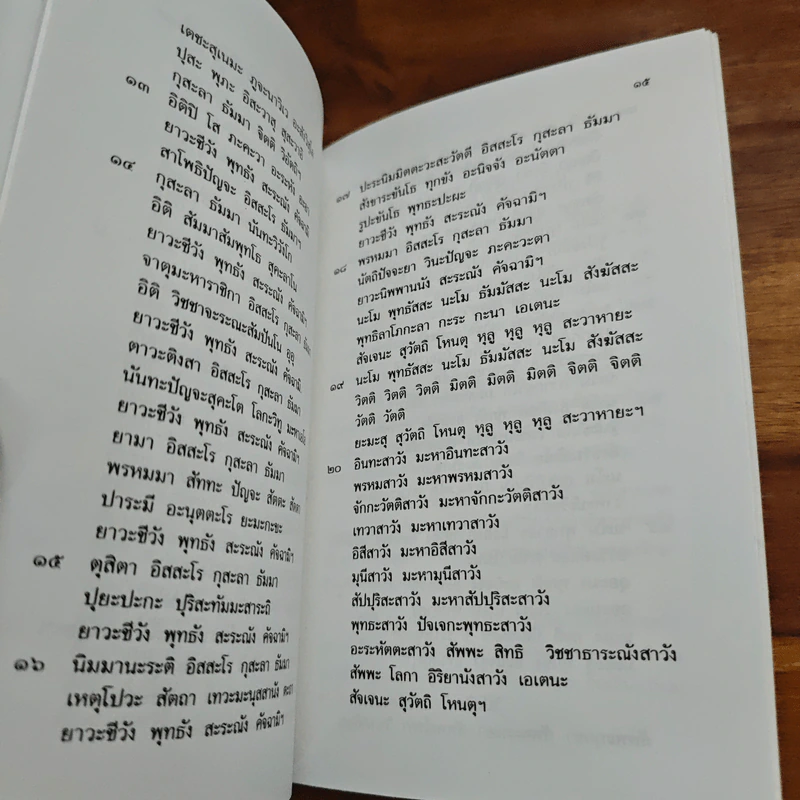 เดชะสุเนมะ ภูจะนาวิเว
ปุสะ พุภะ อิสะวาสุ สุสะวาอิ
๑๓ กุสะลา ธัมมา จิตติ วิอัตถิ
อิติปิ โส ภะคะวา อะระหัง
ยาวะชีวัง พุทธัง สะระณัง คัจฉามิ
๑๔ สาโพธิปัญจะ อิสสะโร ธัมมา
กุสะลา ธัมมา นันทะวิวังโก
อิติ สัมมาสัมพุทโธ สุคะลาโน
ยาวะชีวัง พุทธัง สะระณัง คัจฉามิฯ
จาตุมะหาราชิกา อิสสะโร กุสะลา ธัมมา
อิติ วิชชาจะระณะสัมปันโน อุอุ
ยาวะชีวัง พุทธัง สะระณัง คัจฉามิ
ตาวะติงสา อิสสะโร กุสะลา ธัมมา
นันทะปัญจะสุคะโต โลกะวิทู
ยาวะชีวัง พุทธัง สะระณัง คัจฉามิฯ
ยามา อิสสะโร กุสะลา ธัมมา
พรหมมา สัททะ ปัญจะ สัตตะ
ปาระมี อะนุตตะโร ยะมะกะขะ
ยาวะชีวัง พุทธัง สะระณัง คัจฉามิฯ
๑๕ ตุสิตา อิสสะโร กุสะลา ธัมมา
ปุยะปะกะ ปุริสะทัมมะสาระถิ
ยาวะชีวัง พุทธัง สะระณัง คัจฉามิฯ
๑๖ นิมมานะระติ อิสสะโร กุสะลา ธัมมา
เหตุโปวะ สัตถา เทวะมะนุสสานัง
ยาวะชีวัง พุทธัง สะระณัง คัจฉามิฯ
๑๕
๑๗ ปะระนิมมิตตะวะสะวัตตี อิสสะโร กุสะลา ธัมมา
สังขาระขันโธ ทุกขัง อะนิจจัง อะนัตตา
รูปะขันโธ พุทธะปะผะ
ยาวะชีวัง พุทธัง สะระณัง คัจฉามิฯ
๑๘ พรหมมา อิสสะโร กุสะลา ธัมมา
นัตถิปัจจะยา วินะปัญจะ ภะคะวะตา
ยาวะนิพพานัง สะระณัง คัจฉามิฯ
นะโม พุทธัสสะ นะโม ธัมมัสสะ นะโม สังฆัสสะ
พุทธิลาโภกะลา กะระ กะนา เอเตนะ
สัจเจนะ สุวัตถิ โหนตุ หุลู หุลู หุลู สะวาหายะ
๑๙ นะโม พุทธัสสะ นะโม ธัมมัสสะ นะโม สังฆัสสะ
วิตติ วิตติ วิตติ มิตติ มิตติ มิตติ จิตติ จิตติ
วัตติ วัตติ
ยะมะสุ สุวัตถิ โหนตุ หุลู หุลู หุลู สะวาหายะฯ
๒๐ อินทะสาวัง มะหาอินทะสาวัง
พรหมสาวัง มะหาพรหมสาวัง
จักกะวัตติสาวัง มะหาจักกะวัตติสาวัง
เทวาสาวัง มะหาเทวาสาวัง
อิสีสาวัง มะหาอิสีสาวัง
มุนีสาวัง มะหามุนีสาวัง
สัปปุริสะสาวัง มะหาสัปปุริสะสาวัง
พุทธะสาวัง ปัจเจกะพุทธะสาวัง
อะระหัตตะสาวัง สัพพะ สิทธิ วิชชาธาระณังสาวัง
สัพพะ โลกา อิริยานังสาวัง เอเตนะ
สัจเจนะ สุวัตถิ โหนตุฯ